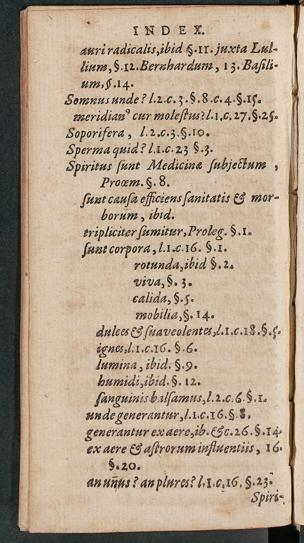 INDEX.
auri radicalis, ibid §. 11. juxta Lul-
lium, §. 12. Bernhardum, 13. Basili-
um, §. 14.
Somnus unde? l. 2. c. 3. §. 8. c. 4. §. 15.
meridianꝰ cur molestus? l. 1. c. 27. §. 25.
Soporifera, l. 2. c. 3. §. 10.
Sperma quid? l. 1. c. 23 §. 3.
Spiritus sunt Medicinæ subjectum,
Proœm. §. 8.
sunt causa efficiens sanitatis & mor-
borum, ibid.
tripliciter sumitur, Proleg. §. 1.
sunt corpora, l. 1. c. 16. §. 1.
rotunda, ibid §. 2.
viva, §. 3.
calida, §. 5.
mobilia, §. 14.
dulces & suaveolentes, l. 1. c. 18. §. 5.
ignes, l. 1. c. 16. §. 6.
lumina, ibid. §. 9.
humidi, ibid. §. 12.
sanguinis balsamus, l. 2. c. 6. §. 1.
unde generantur, l. 1. c. 16 §. 8.
generantur ex aere, ib. & c. 26. §. 14.
ex aere & astrorum influentiis, 16.
§. 20.
an unus? an plures? l. 1. c. 16. §. 23.
Spiri-